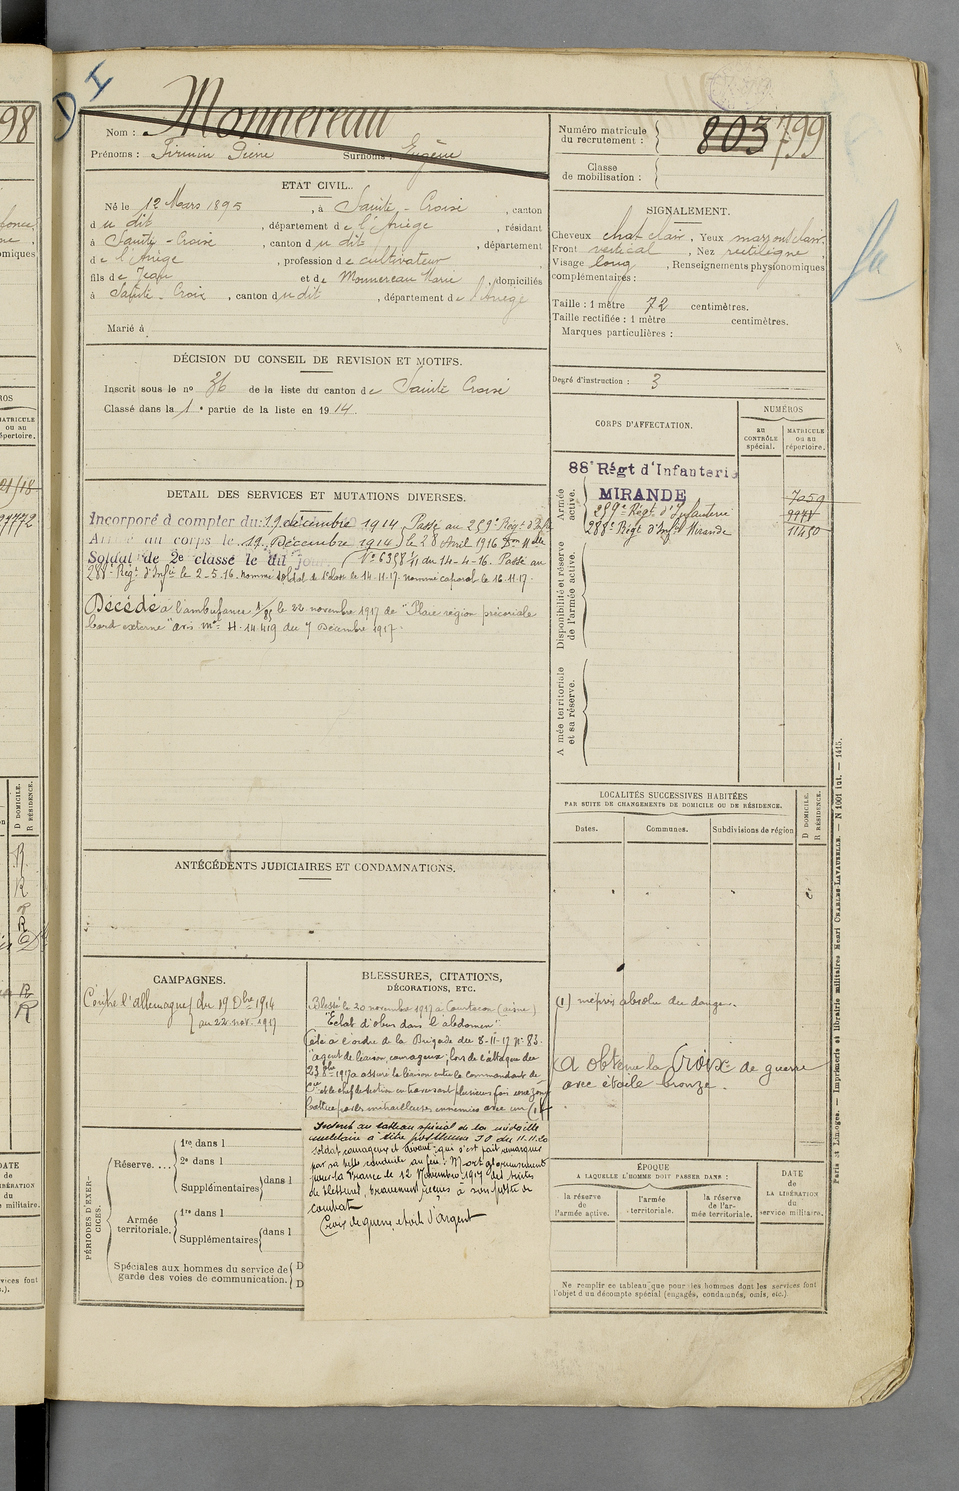 98
D I
Nom : Monnereau
Prénoms : Firmin Pierre Surnoms : Eugène
ETAT CIVIL.
Né le 12 Mars 1895, à Sainte-Croise, canton
du dit, département de l'Ariège, résidant
à Sainte-Croise, canton du dit, département
de l'Ariège, profession de cultivateur
fils de Jean et de Monnereau Marie, domiciliés
à Sainte-Croix, canton du dit, département de l'Ariège
Marié à
DÉCISION DU CONSEIL DE REVISION ET MOTIFS.
Inscrit sous le no 36 de la liste du canton de Sainte Croise
Classé dans la 1e partie de la liste en 1914.
DETAIL DES SERVICES ET MUTATIONS DIVERSES.
Incorporé à compter du: 19 décembre 1914 Passé au 289e Régt d'Inf
Arrivé au corps le 19 Décembre 1914 le 28 Avril 1916
Soldat de 2e classe le dit jour No 6358 du 14-4-16. Passé au
288e Régt d'Infie le 2-5-16. nommé soldat de 1e classe le 14.11.17. nommé caporal le 16.11.17.
Décédé à l'ambulance 1/85 le 22 novembre 1917 de "Plaie région précordiale
bord externe" avis mel H.14.419 du 7 Décembre 1917.
ANTÉCÉDENTS JUDICIAIRES ET CONDAMNATIONS.
CAMPAGNES.
Contre l'allemagne du 19 Dbre 1914
au 22 nov. 1917
BLESSURES, CITATIONS,
DÉCORATIONS, ETC.
Blessé le 20 novembre 1917 à Courtecon (aisne)
"Eclat d'obus dans l'abdomen".
Cité à l'ordre de la Brigade du 8-11-17 No 83.
"agent de liaison, courageux, lors de l'attaque du
23 8bre 1917 a assuré la liaison entre le commandant de
Cie et le chef de section en traversant plusieurs fois une zone
battue par les mitrailleuses ennemies avec un (1)
Inscrit au tableau spécial de la médaille
militaire à titre posthume JO du 11.11.20
soldat courageux et dévoué qui s'est fait remarquer
par sa belle conduite au feu. Mort glorieusement
pour la France le 12 Novembre 1917 des suites
de blessures, bravement reçues à son poste de
combat
Croix de guerre etoile d'argent
PÉRIODES D'EXERCICES.
Réserve....
1re dans l
2e dans l
Supplémentaires dans l
Armée territoriale.
1re dans l
Supplémentaires dans l
Spéciales aux hommes du service de
garde des voies de communication.
D
D
Numéro matricule
du recrutement : 803 799
Classe
de mobilisation :
SIGNALEMENT.
Cheveux chat clair, Yeux marrons clairs
Front vertical, Nez rectiligne,
Visage long, Renseignements physionomiques
complémentaires :
Taille : 1 mètre 72 centimètres.
Taille rectifiée : 1 mètre centimètres.
Marques particulières :
Degré d'instruction : 3
CORPS D'AFFECTATION.
NUMÉROS
au
CONTRÔLE
spécial.
MATRICULE
ou au
répertoire.
Armée active.
88e Régt d'Infanterie
MIRANDE 7059
289e Régt. d'Infanterie
288e Régt d'Infie Mirande 11450
Disponibilité et réserve
de l'armée active.
Armée territoriale
et sa réserve.
LOCALITÉS SUCCESSIVES HABITÉES
PAR SUITE DE CHANGEMENTS DE DOMICILE OU DE RÉSIDENCE.
Dates.
Communes.
Subdivisions de région
D DOMICILE.
R RÉSIDENCE.
(1) mépris absolu du danger.
a obtenu la Croix de guerre
avec étoile bronze.
ÉPOQUE
A LAQUELLE L'HOMME DOIT PASSER DANS :
la réserve
de
l'armée active.
l'armée
territoriale.
la réserve
de l'ar-
mée territoriale.
DATE
de
LA LIBÉRATION
du
service militaire.
Ne remplir ce tableau que pour les hommes dont les services font
l'objet d'un décompte spécial (engagés, condamnés, omis, etc.).
Paris et Limoges. — Imprimerie et librairie militaires Henri CHARLES-LAVAUZELLE. — N 1001 int. — 1415.